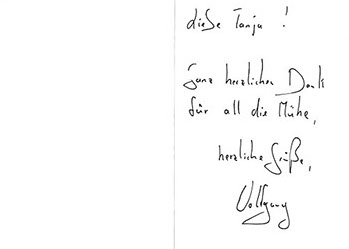 diese Tanja !
ganz herzlichen Dank
für all die Mühe,
herzliche Grüße,
Wolfgang